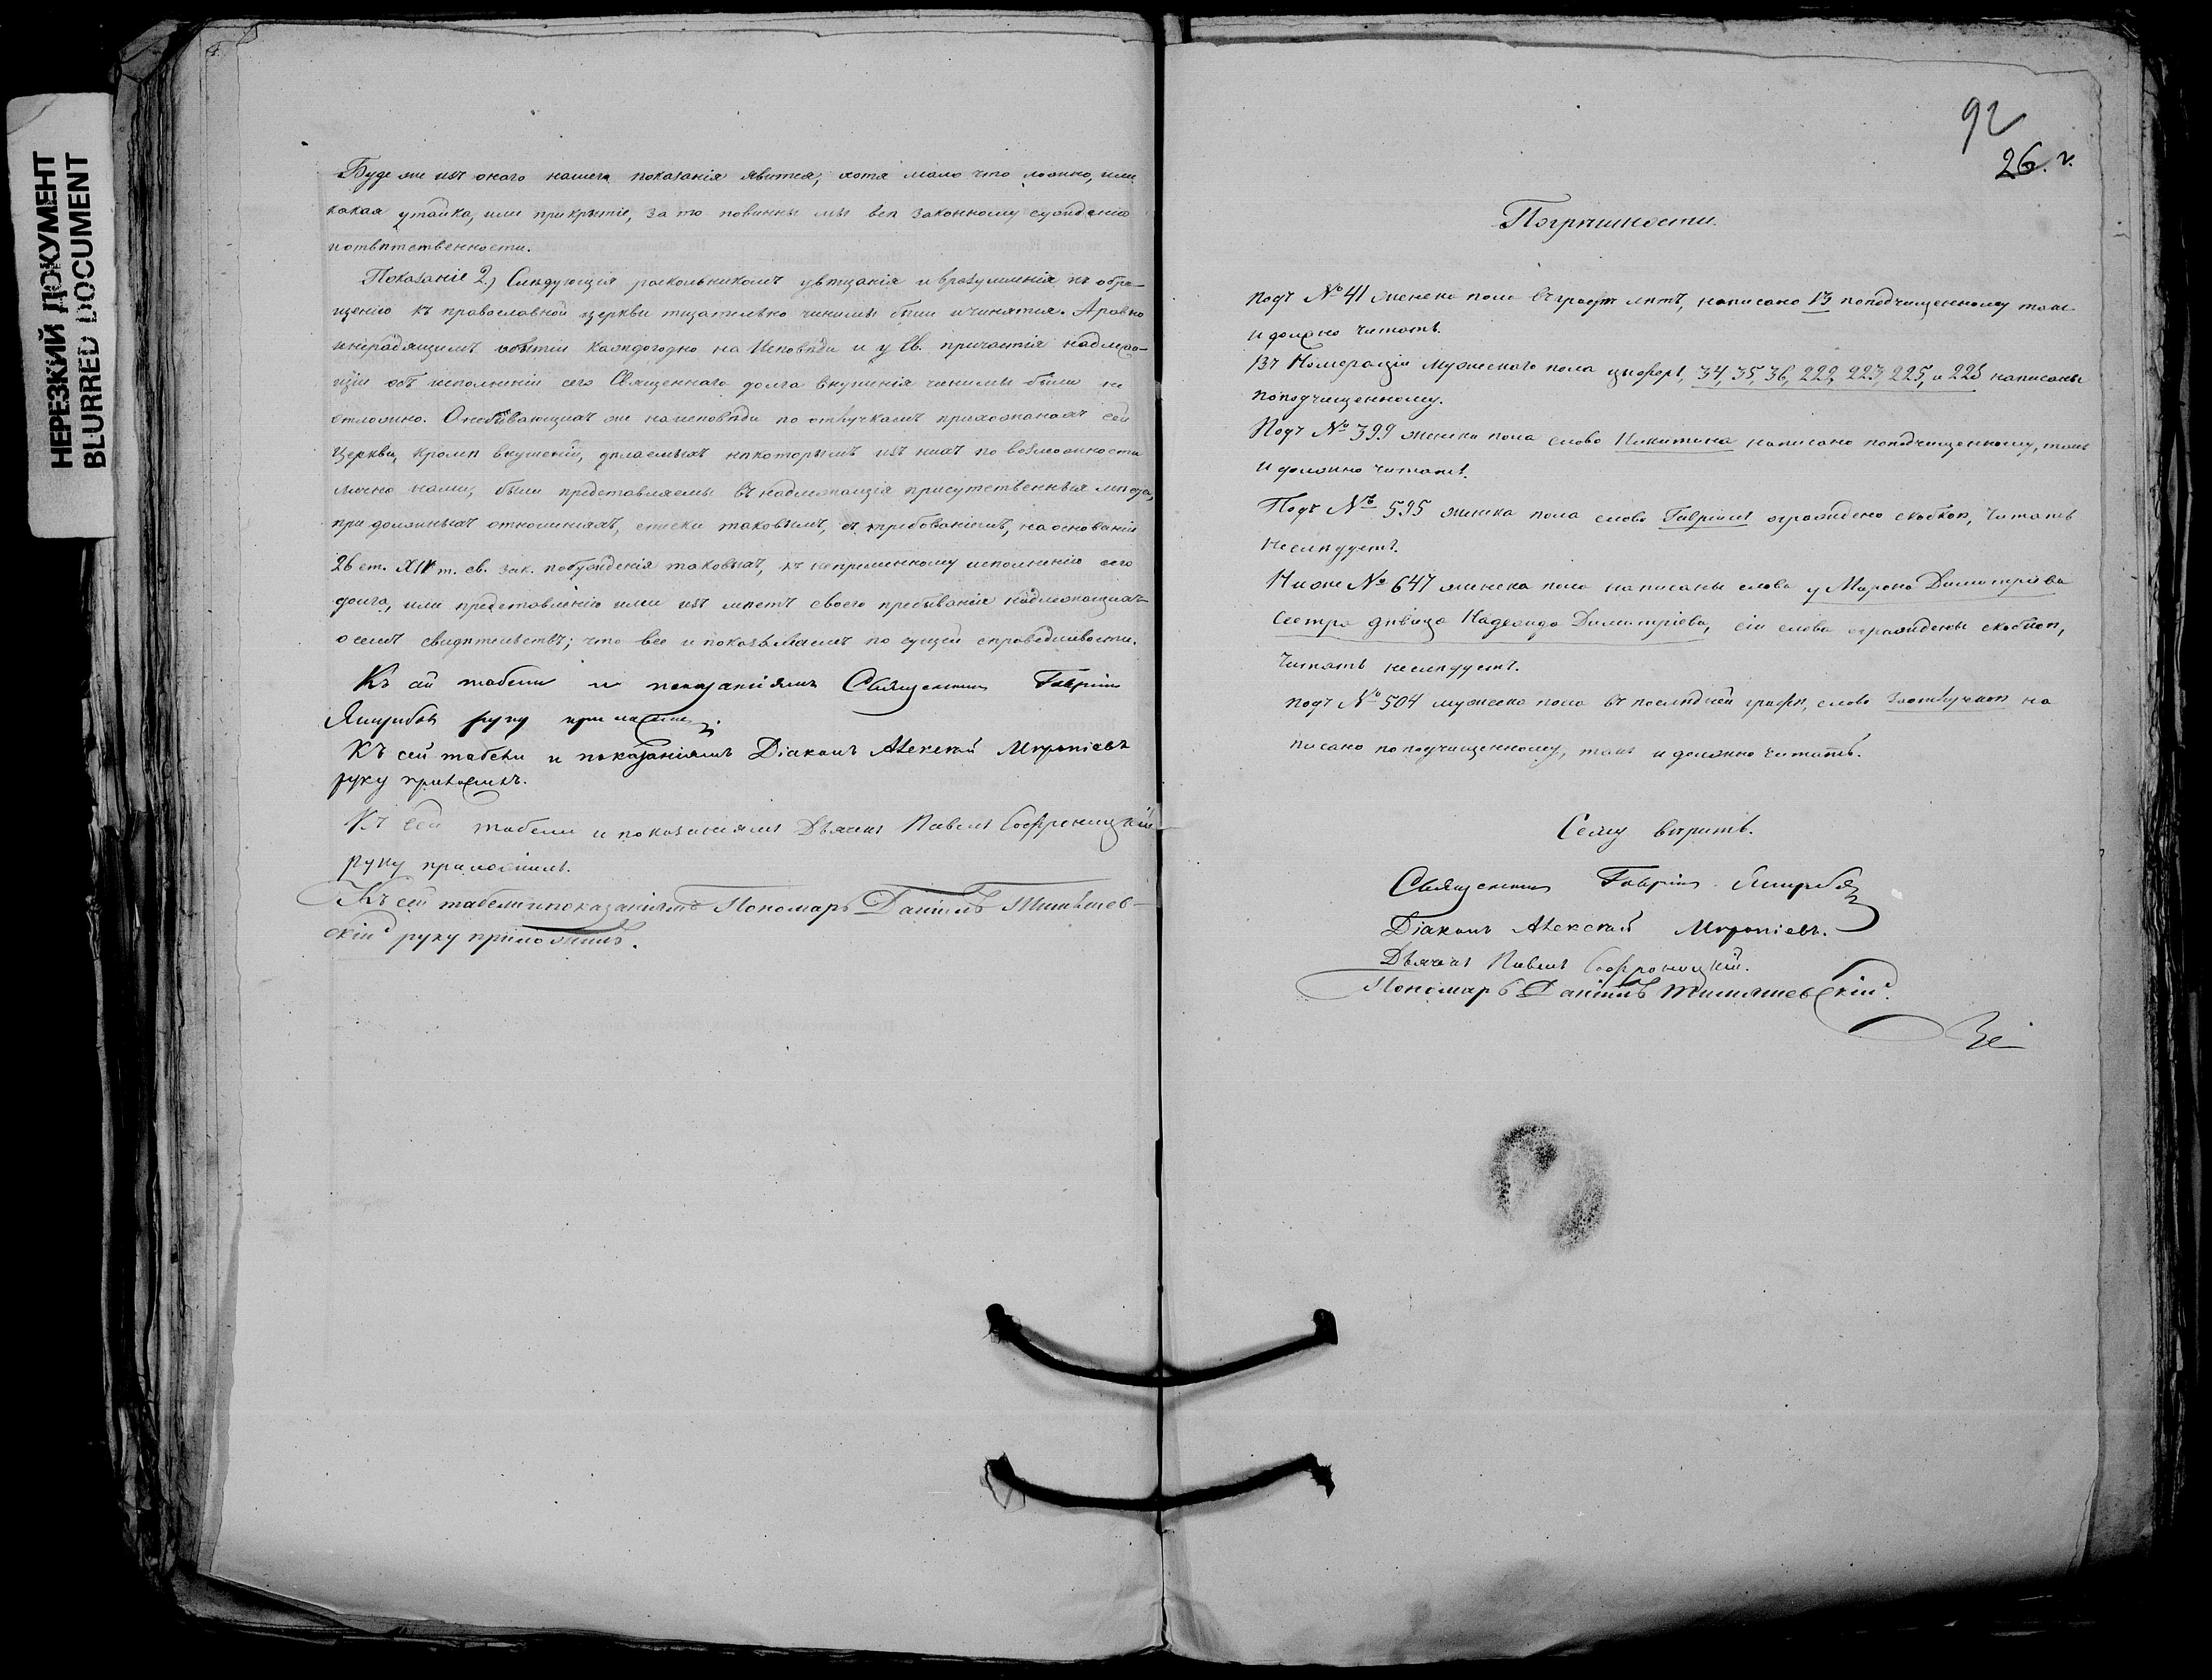 НЕРЕЗКИЙ ДОКУМЕНТ
BLURRED DOCUMENT
Буде же изъ онаго нашего показанія явится, хотя мало что ложно, или
какая утайка, или прикрытіе, за то повинны мы всѣ законному сужденію
и отвѣтственности.
Показаніе 2.) Слѣдующія раскольникамъ увѣщанія и вразумленія къ обра-
щенію къ православной церкви тщательно чинимы были и чинятся. А равно
и нерадящимъ о бытіи каждогодно на Исповѣди и у Св. причастія надлежа-
щія объ исполненіи сего Священнаго долга внушенія чинимы были не
отложно. О небывающихъ же на исповѣди по отлучкамъ прихожанахъ сей
церкви, кромѣ внушеній, дѣлаемыхъ нѣкоторымъ изъ нихъ по возможности
лично нами, были представляемы въ надлежащія присутственныя мѣста,
при должныхъ отношеніяхъ, списки таковымъ, съ требованіемъ, на основаніи
26 ст. XIV т. св. зак. побужденія таковыхъ, къ непременному исполненію сего
долга, или представленію ими изъ мѣстъ своего пребыванія надлежащихъ
о семъ свидѣтельствъ; что все и показываемъ по сущей справедливости.
Къ сей табели и показаніямъ Священникъ Гавріилъ
руку приложилъ.
Къ сей табели и показаніямъ Діаконъ Алексѣй
руку приложилъ.
Къ сей табели и показаніямъ Дьячекъ Павелъ Софроницкій
руку приложилъ.
Къ сей табели и показаніямъ Пономарь Даніилъ
руку приложилъ.
92
26.
Погрѣшности.
Подъ № 41 женска пола въ графѣ лѣтъ, написано 13 поподчищенному такъ
и должно читать.
Въ Номераціи мужескаго пола цыфры, 34, 35, 36, 222, 223, 225, и 228 написаны
поподчищенному.
Подъ № 399 женска пола слово Никитина написано поподчищенному, такъ
и должно читать.
Подъ № 595 женска пола слово Гавріилъ ограждено скобкою, читать
неслѣдуетъ.
Ниже № 647 женска пола написаны слова у Марона Димитріева
Сестра дѣвица Надежда Димитріева, сіи слова ограждены скобкою,
читать неслѣдуетъ.
Подъ № 504 мужеска пола въ послѣдней графѣ, слово Заотлучкою на
писано поподчищенному, такъ и должно читать.
Сему вѣрить.
Священникъ Гавріилъ
Діаконъ Алексѣй
Дьячекъ Павелъ Софроницкій.
Пономарь Даніилъ